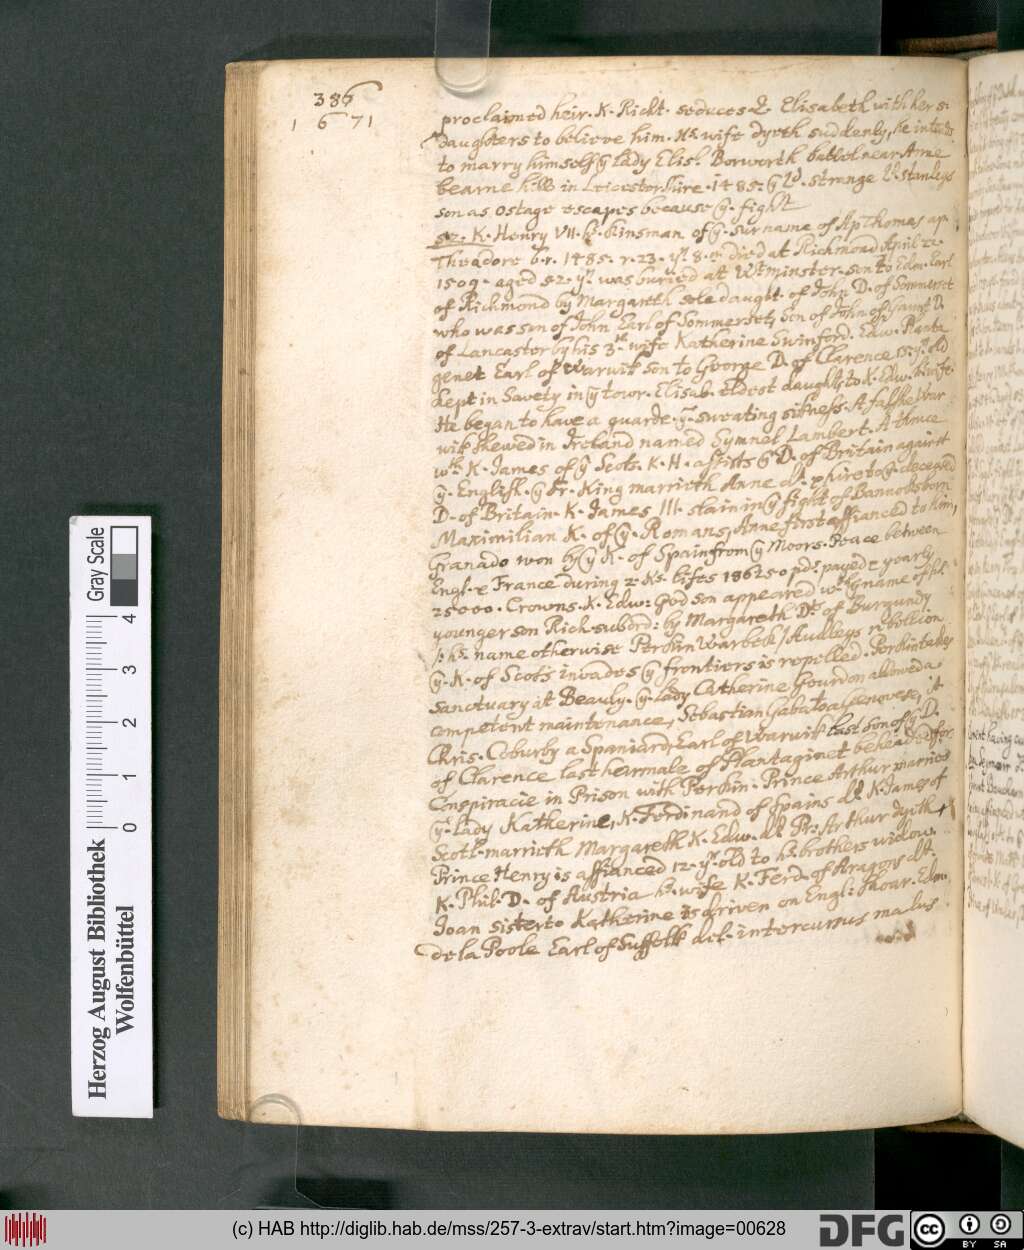 386
1671
proclaimed heir. K. Richt. seduces Q. Elisabeth with her s.
daughters to believe him. Hs. wife dyeth suddenly, he intends
to marry himself yͤ lady Elis. Bosworth battel near Anne
bearne hills in Leicestershire. 1485. yͤ Ld. strange L. Stanleys
son as Ostage escapes because yͤ. fight
52. K. Henry VII. kinsman of yͤ. surname of Ap Thomas ap
Theodore b. r. 1485. r. 23. yͬ. 8. m. died at Richmond April 22.
1509. aged 52. yͬ. was buried at Wtminster. son to Edm. Earl
of Richmond by Margareth sole daught. of John D. of Sommerset
who was son of John Earl of Sommerset, son of John of Gaunt D.
of Lancaster by his 3. wife Katherine Swinford. Edw. Planta
genet Earl of Warwik son to George D. of Clarence 15. yͬ. old
kept in Savety in yͤ tour. Elisab. eldest daught. to K. Edw. h. wife.
He began to have a guarde. yͤ. sweating sikness. A falshe War
wik shewed in Ireland named Symnel Lambert. A truce
wth. K. James of yͤ Scots. K. H. assists yͤ D. of Britain against
yͤ. English. yͤ Fr. King marrieth Anne dt. & hire to yͤ. deceased
D. of Britain. K. James III. slain in yͤ fight of Bannoksborn
Maximilian K. of yͤ. Romans, Anne first affianced to him,
Granado won by yͤ K. of Spain from yͤ Moors. Peace between
Engl. & France during 2. Ks. lifes 186250 pd. payed & yearly
25000. Crowns. K. Edw: God son appeared wth yͤ name of hs.
younger son Rich. subord: by Margareth Ds. of Burgundy
/: hs. name otherwise Perkin Warbek/ Audleys rebellion
yͤ. K. of Scots invades yͤ frontiers is repelled. Perkin takes
sanctuary at Beauly. yͤ. Lady Catherine Gourdon allowed a
competent maintenance, Sebastian Gabato a Genovese, it
Chris. Coburby a Spaniard, Earl of Warwik last son of yͤ. D.
of Clarence last heir male of Plantaginet beheaded for
Conspiracie in Prison with Perkin. Prince Arthur marries
yͤ. Lady Katherine, K. Ferdinand of Spains dt. K. James of
Scotl. marrieth Margareth K. Edw. dt. Pr. Arthur dyeth
Prince Henry is affianced 12. yͬ. old to hs. brothers widow.
K. Phil. D. of Austria hs. wife K. Ferd. of Aragons dt.
Joan sister to Katherine is driven on Engl: shoar. Edm.
de la Poole Earl of Suffolk det. intercursus malus
Herzog August Bibliothek
Wolfenbüttel
Gray Scale
0 1 2 3 4
(c) HAB http://diglib.hab.de/mss/257-3-extrav/start.htm?image=00628
DFG
cc BY SA